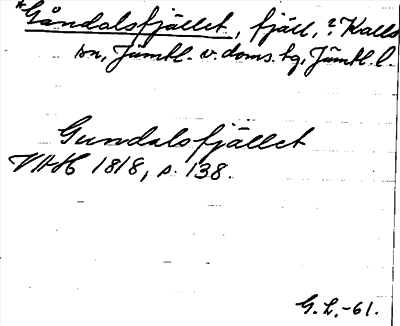 *Gåndalsfjället, fjäll, ? Kalls
sn, Jämtl. v. doms. tg, Jämtl. l.
Gundalsfjället
VAH 1818, s. 138.
G. L. -61.